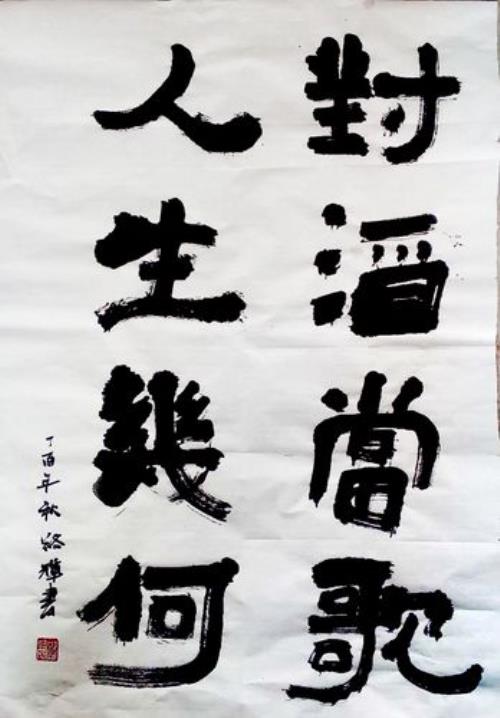 對酒當歌
人生幾何
丁酉年秋路輝書